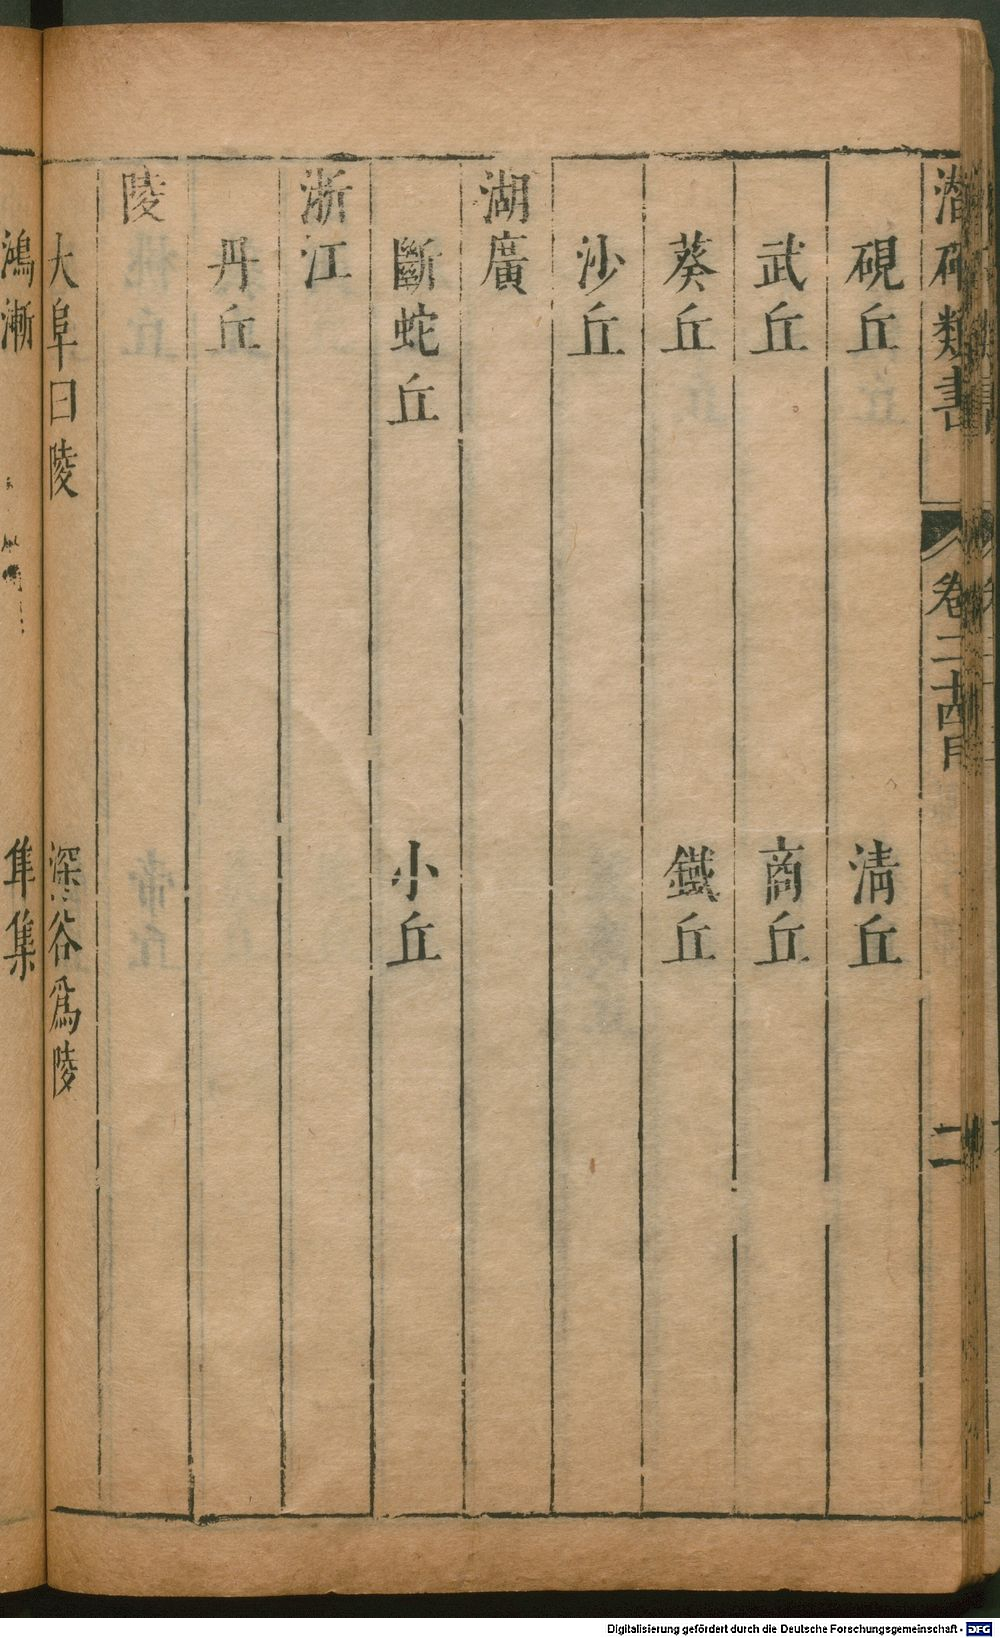 潛確類書 卷二十四目 二
硯丘 淸丘
武丘 商丘
葵丘 鐵丘
沙丘
湖廣
斷蛇丘 小丘
浙江
丹丘
陵
大阜曰陵 深谷爲陵
鴻漸 隼集
Digitalisierung gefördert durch die Deutsche Forschungsgemeinschaft - DFG